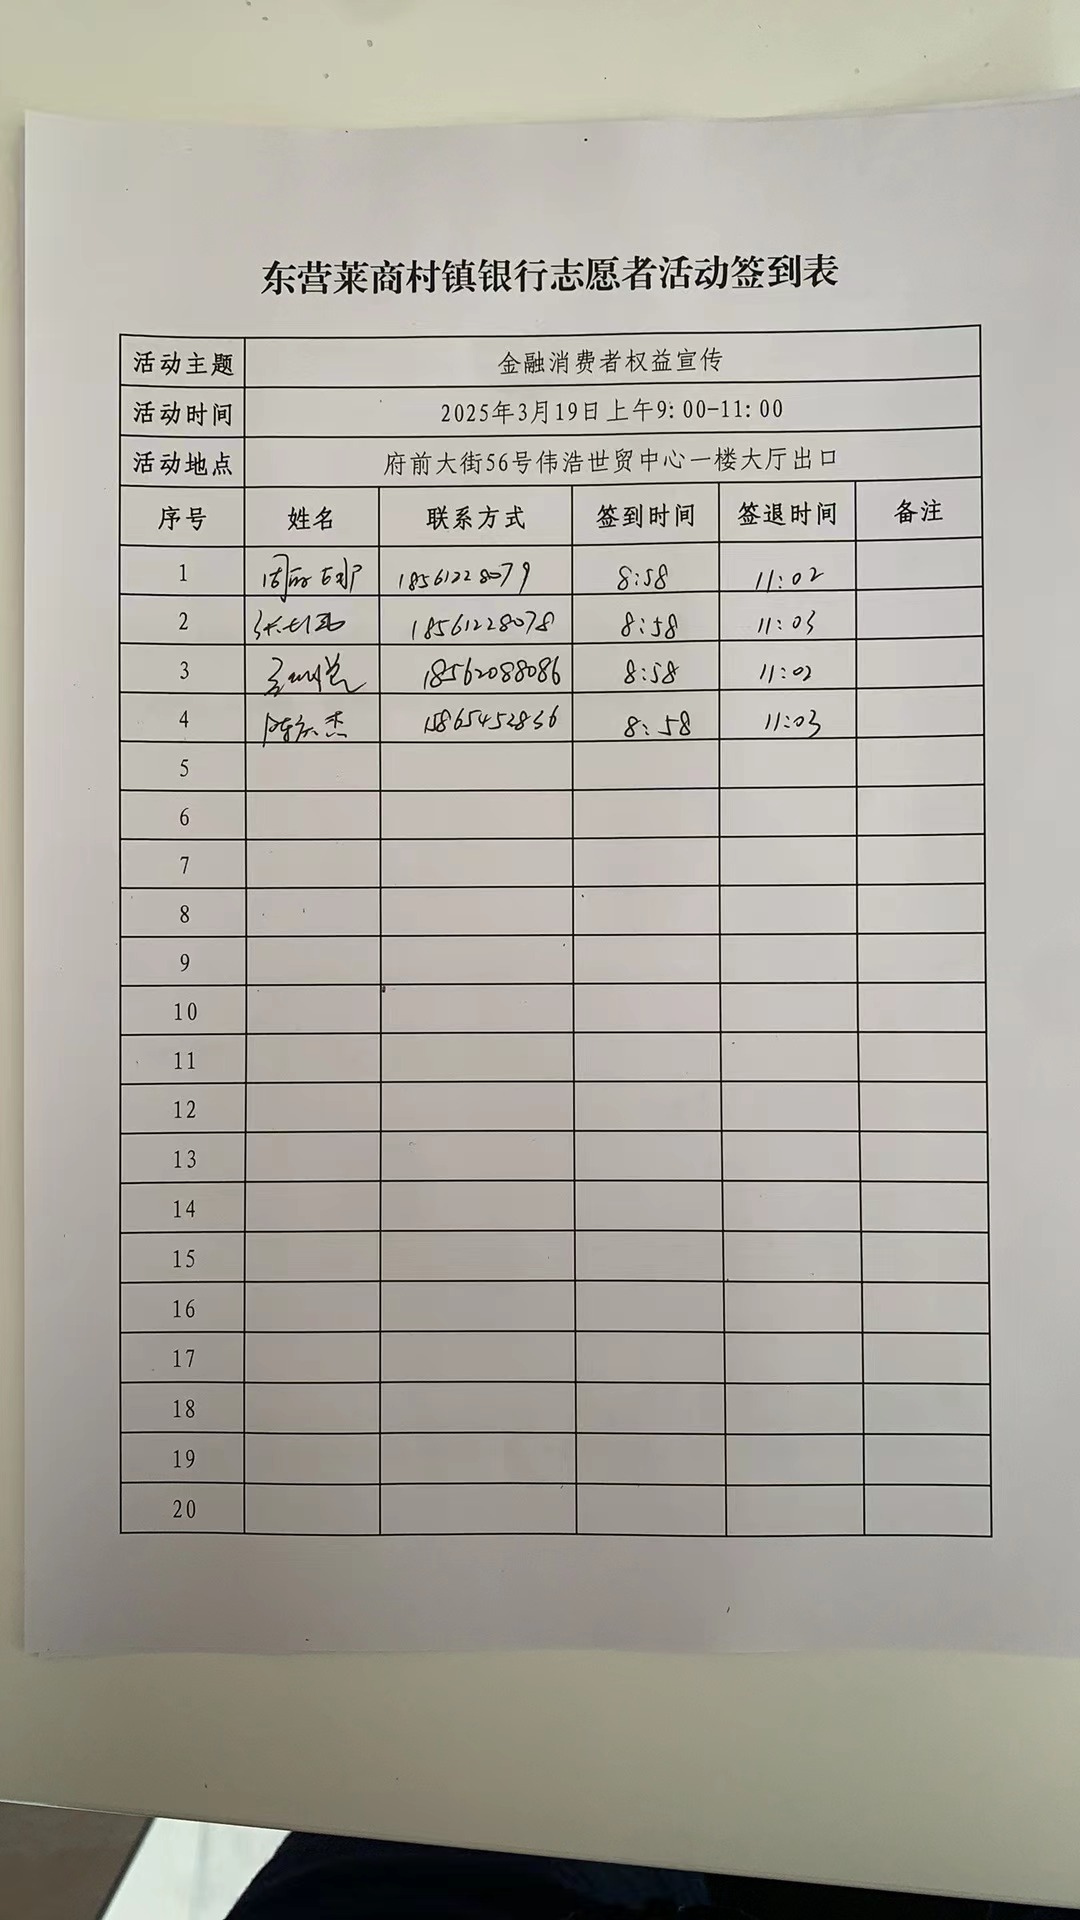 东营莱商村镇银行志愿者活动签到表
活动主题 金融消费者权益宣传
活动时间 2025年3月19日上午9:00-11:00
活动地点 府前大街56号伟浩世贸中心一楼大厅出口
序号 姓名 联系方式 签到时间 签退时间 备注
1 18561228079 8:58 11:02
2 18561228078 8:58 11:03
3 18562088086 8:58 11:02
4 15865452836 8:58 11:03
5
6
7
8
9
10
11
12
13
14
15
16
17
18
19
20